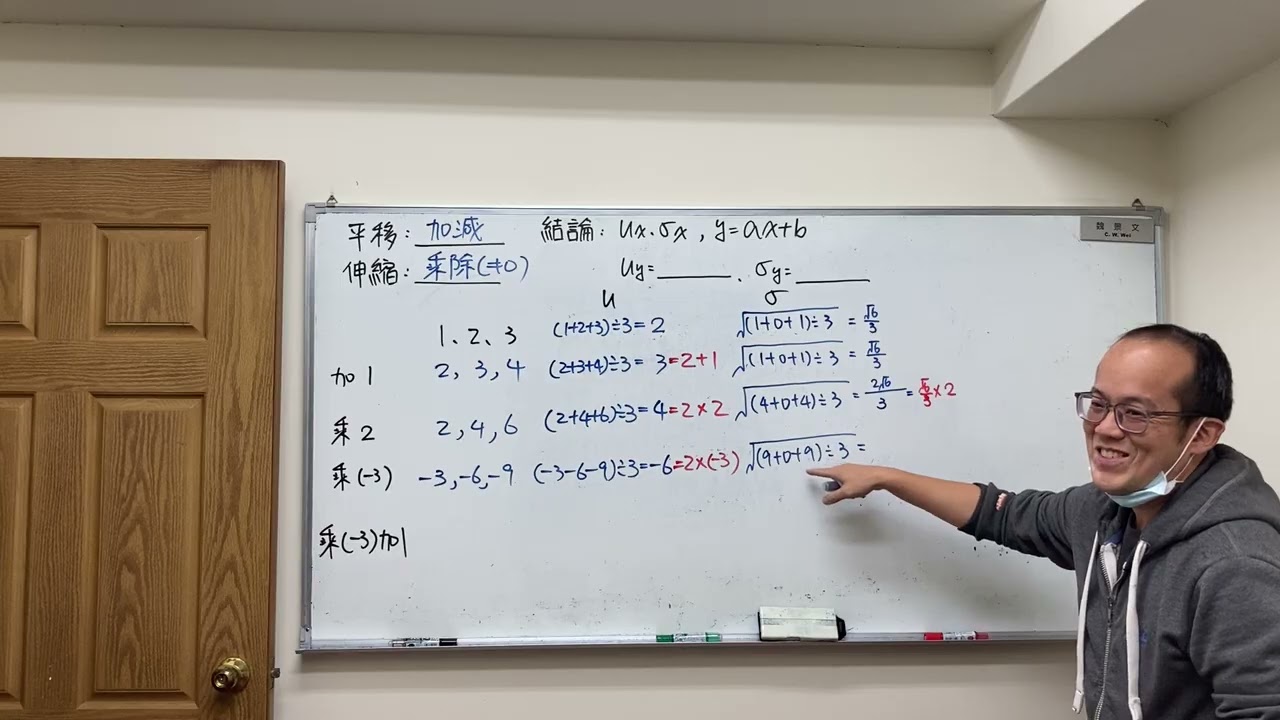 平移：加減 結論：Ux.σx , y=ax+b
伸縮：乘除(≠0) Uy=______ . σy=______
U σ
1、2、3 (1+2+3)÷3=2 √(1+0+1)÷3 = √6/3
加1 2, 3, 4 (2+3+4)÷3= 3=2+1 √(1+0+1)÷3 = √6/3
乘2 2,4,6 (2+4+6)÷3=4=2×2 √(4+0+4)÷3 = 2√6/3 = √6/3×2
乘(-3) -3,-6,-9 (-3-6-9)÷3=-6=2×(-3) √(9+0+9)÷3 =
乘(-3)加1
魏景文
C. W. Wei